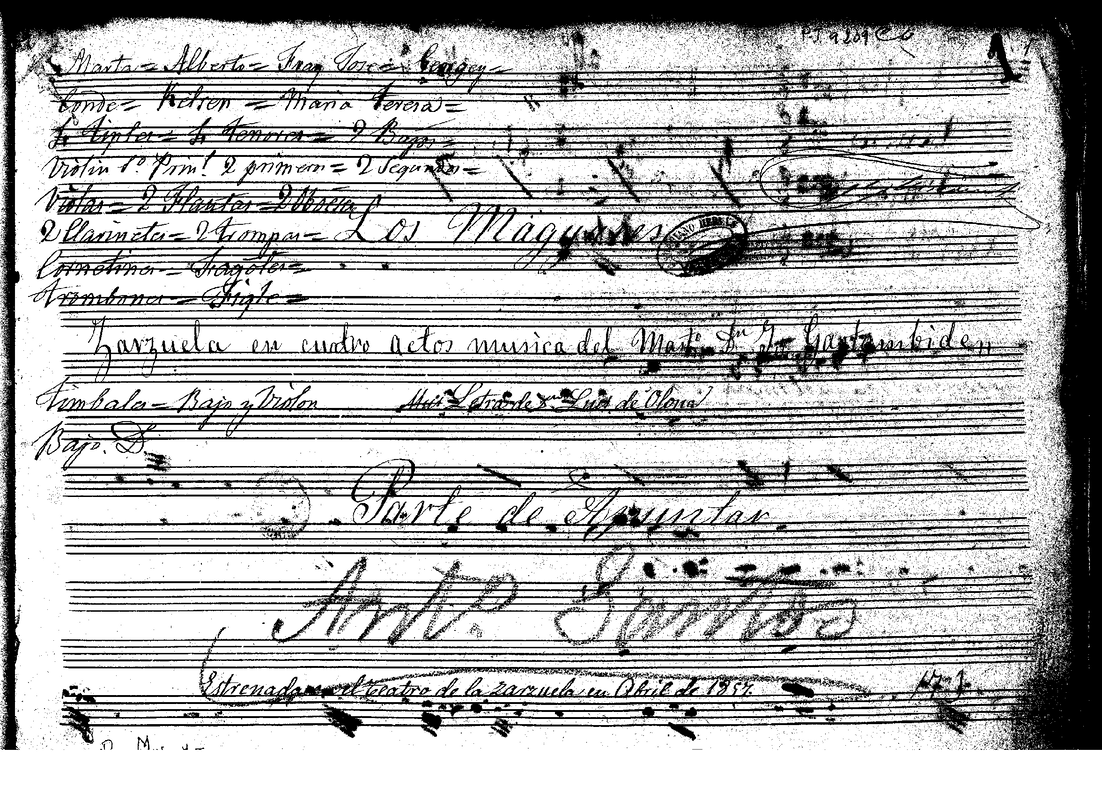 1
Marta = Alberto = Fray José =
Conde = Kelsen = Maria Teresa =
4 tiples = 4 tenores = 2 Bajos =
Violin 1º Prin! 2 primeros = 2 Segundos =
Violas = 2 Flautas = 2 Oboeses
2 Clarinetes = 2 trompas =
Los Magyares
Cornetines = Fagotes =
trombones = Figle =
Zarzuela en cuatro actos musica del Mastº Dn J. Gaztambide,,
Timbales = Bajo y Violon
Letra de Dn Luis de Olona
Bajo. D.
Parte de Apuntar
Antº Santos
Estrenada en el teatro de la zarzuela en Abril de 1857.